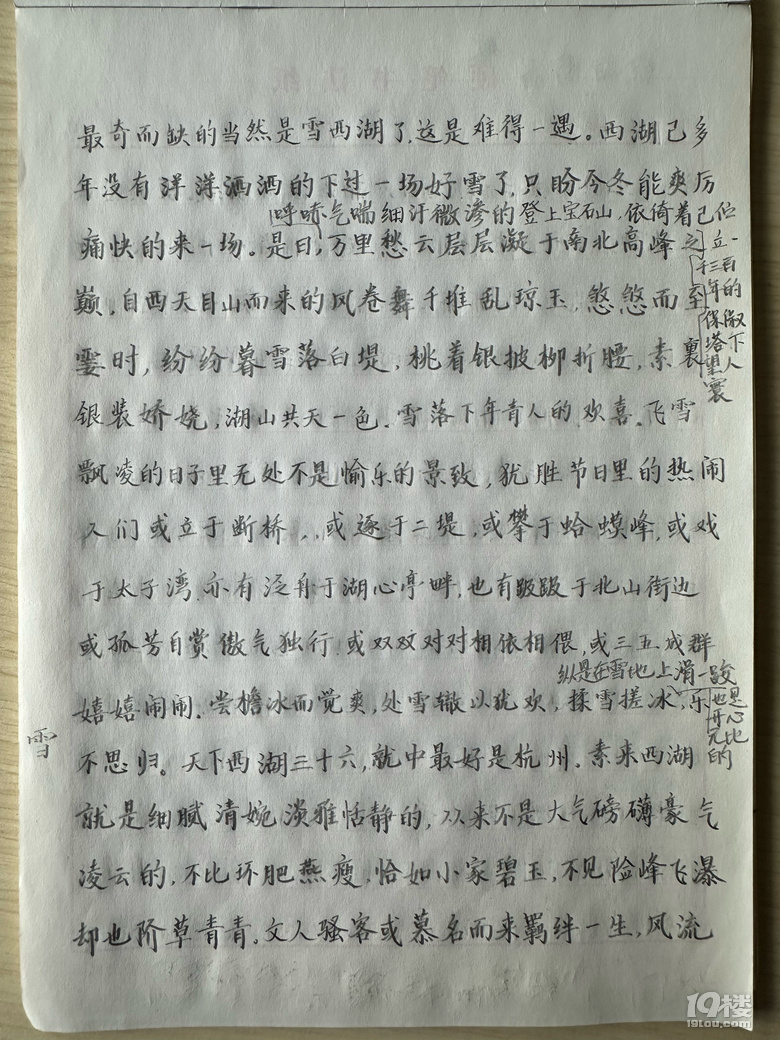 最奇而缺的当然是雪西湖了,这是难得一遇。西湖已多
年没有洋洋洒洒的下过一场好雪了,只盼今冬能爽厉
呼哧气喘细汗微渗的登上宝石山,依倚着已伫
立一千三百年的保俶塔下望人寰
痛快的来一场。是日,万里愁云层层凝于南北高峰之
巅,自西天目山而来的风卷舞千堆乱琼玉,煞煞而至
霎时,纷纷暮雪落白堤,桃着银披柳折腰,素裹
银装娇娆,湖山共天一色.雪落下年青人的欢喜.飞雪
飘凌的日子里无处不是愉乐的景致,犹胜节日里的热闹
人们或立于断桥,或逐于二堤,或攀于蛤蟆峰,或戏
于太子湾.亦有泛舟于湖心亭畔,也有趿趿于北山街边
或孤芳自赏傲气独行.或双双对对相依相偎,或三五成群
纵是在雪地上滑一跤
也是开心无比的
嬉嬉闹闹.尝檐冰而觉爽,处雪辙以犹欢,揉雪搓冰,乐
雪
不思归。天下西湖三十六,就中最好是杭州.素来西湖
就是细腻清婉淡雅恬静的,从来不是大气磅礴豪气
凌云的,不比环肥燕瘦,恰如小家碧玉,不见险峰飞瀑
却也阶草青青。文人骚客或慕名而来羁绊一生,风流
19楼
19lou.com